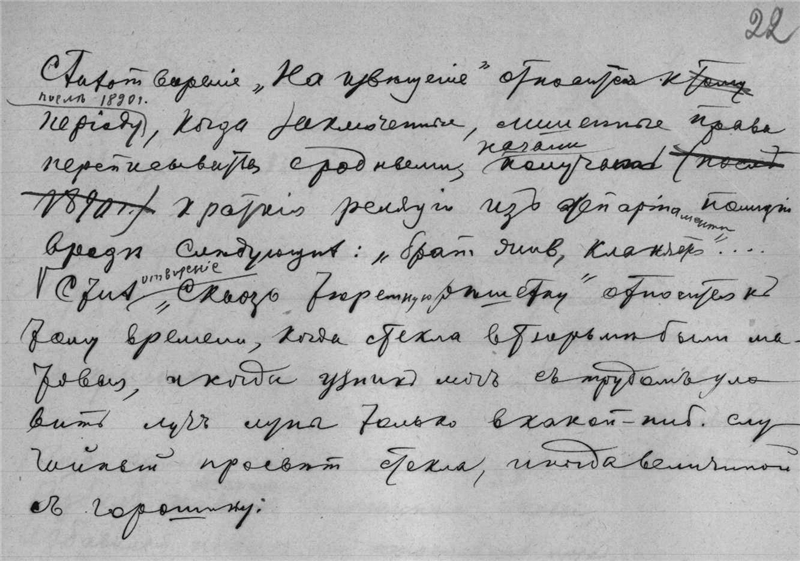 22
Стихотвореніе „На извѣщеніе“ относится къ тому
послѣ 1890 г.
періоду, когда заключенные, лишенные права
начали
переписываться с родными, получать (послѣ
1890 г.) краткія реляціи изъ департамента полиціи
вродѣ слѣдующихъ: „братъ живъ, кланяется“....
Стихотвореніе „Сквозь тюремную рѣшетку“ относится къ
тому времени, когда стекла в тюрьмѣ были ма-
товыя, и когда узникъ могъ съ трудомъ уло
вить лучъ луны только в какой-ниб. слу
чайный просвѣт стекла, иногда величиной
съ горошину: